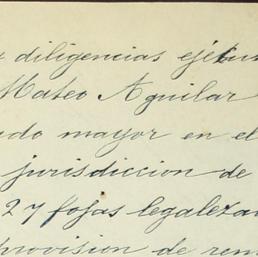 diligencias ejecu
Mateo Aguilar
ado mayor en el
jurisdiccion de
27 fojas legaleza
provision de rem